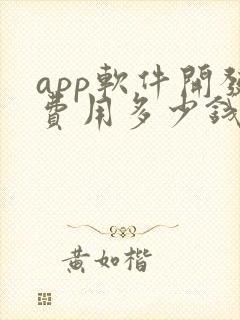 app軟件開發
費用多少錢
黃如楷